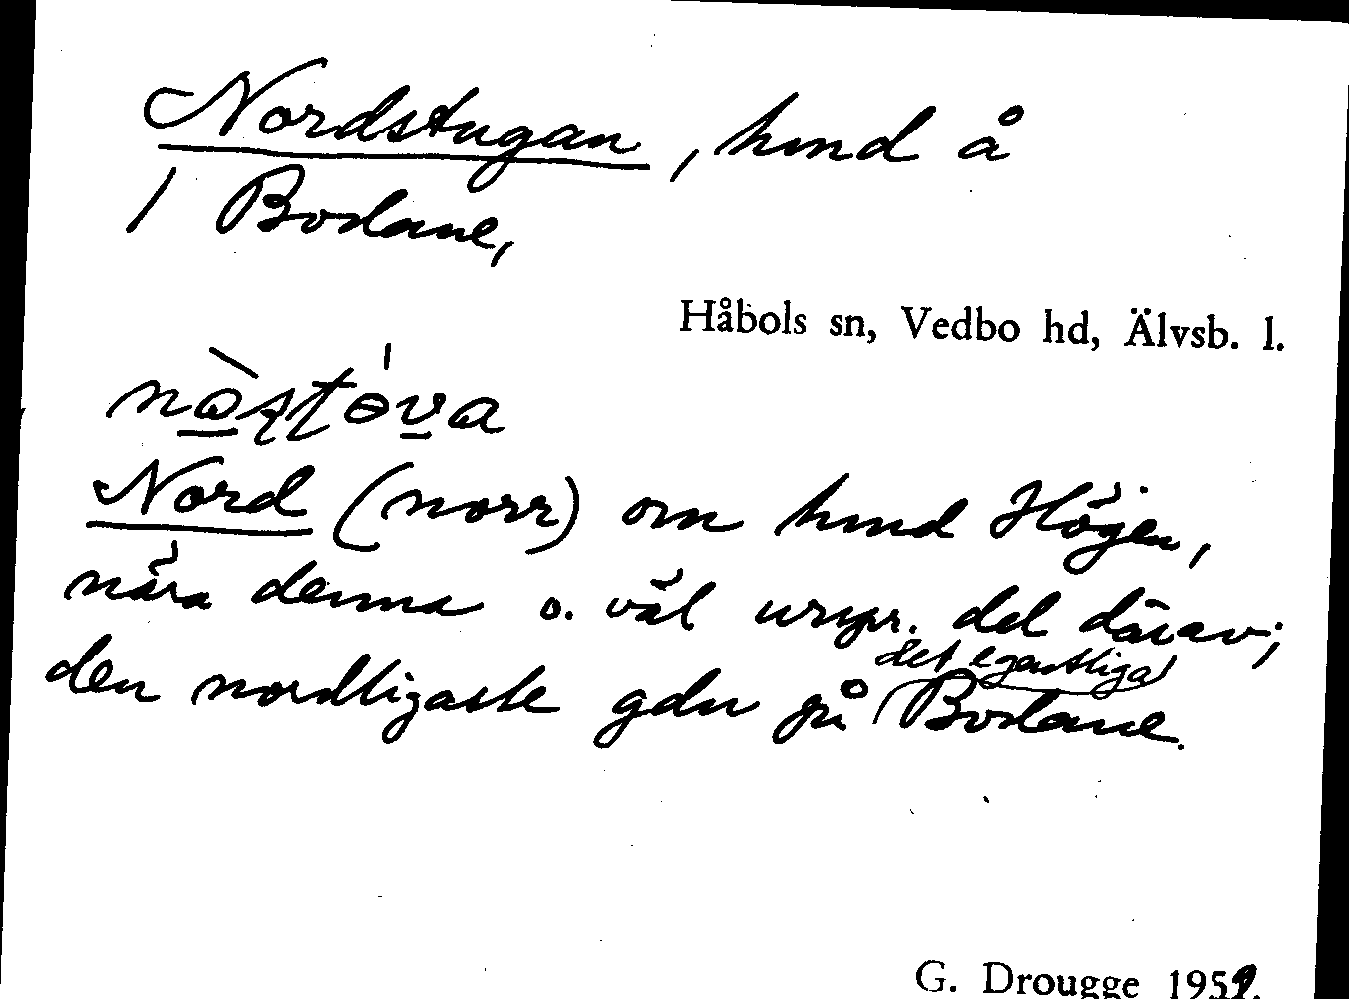 Nordstugan, hmd å
1 Bodane,
Håbols sn, Vedbo hd, Älvsb. l.
Nord (norr) om hmd Högen,
nära denna o. väl urspr. del därav;
den nordligaste gdn på det egentliga Bodane.
G. Drougge 1959.